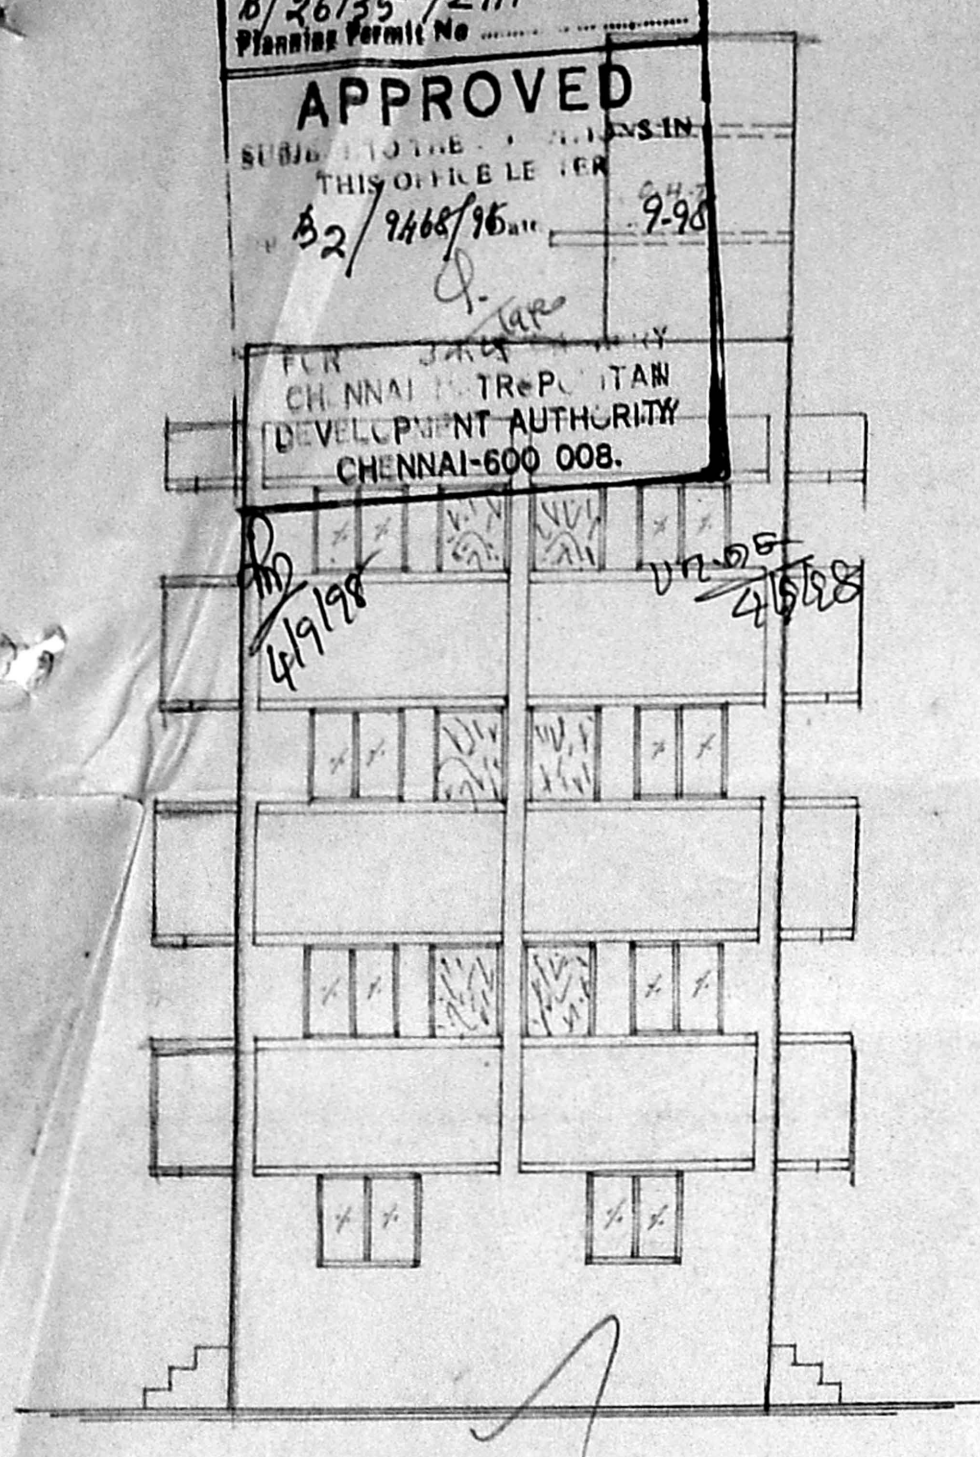 B/26135 /
Planning Permit No
APPROVED
SUBJECT TO THE IN
THIS OFFICE LETTER
B2/9468/95 Date 9-98
FOR
CHENNAI METROPOLITAN
DEVELOPMENT AUTHORITY
CHENNAI-600 008.
4/9/98